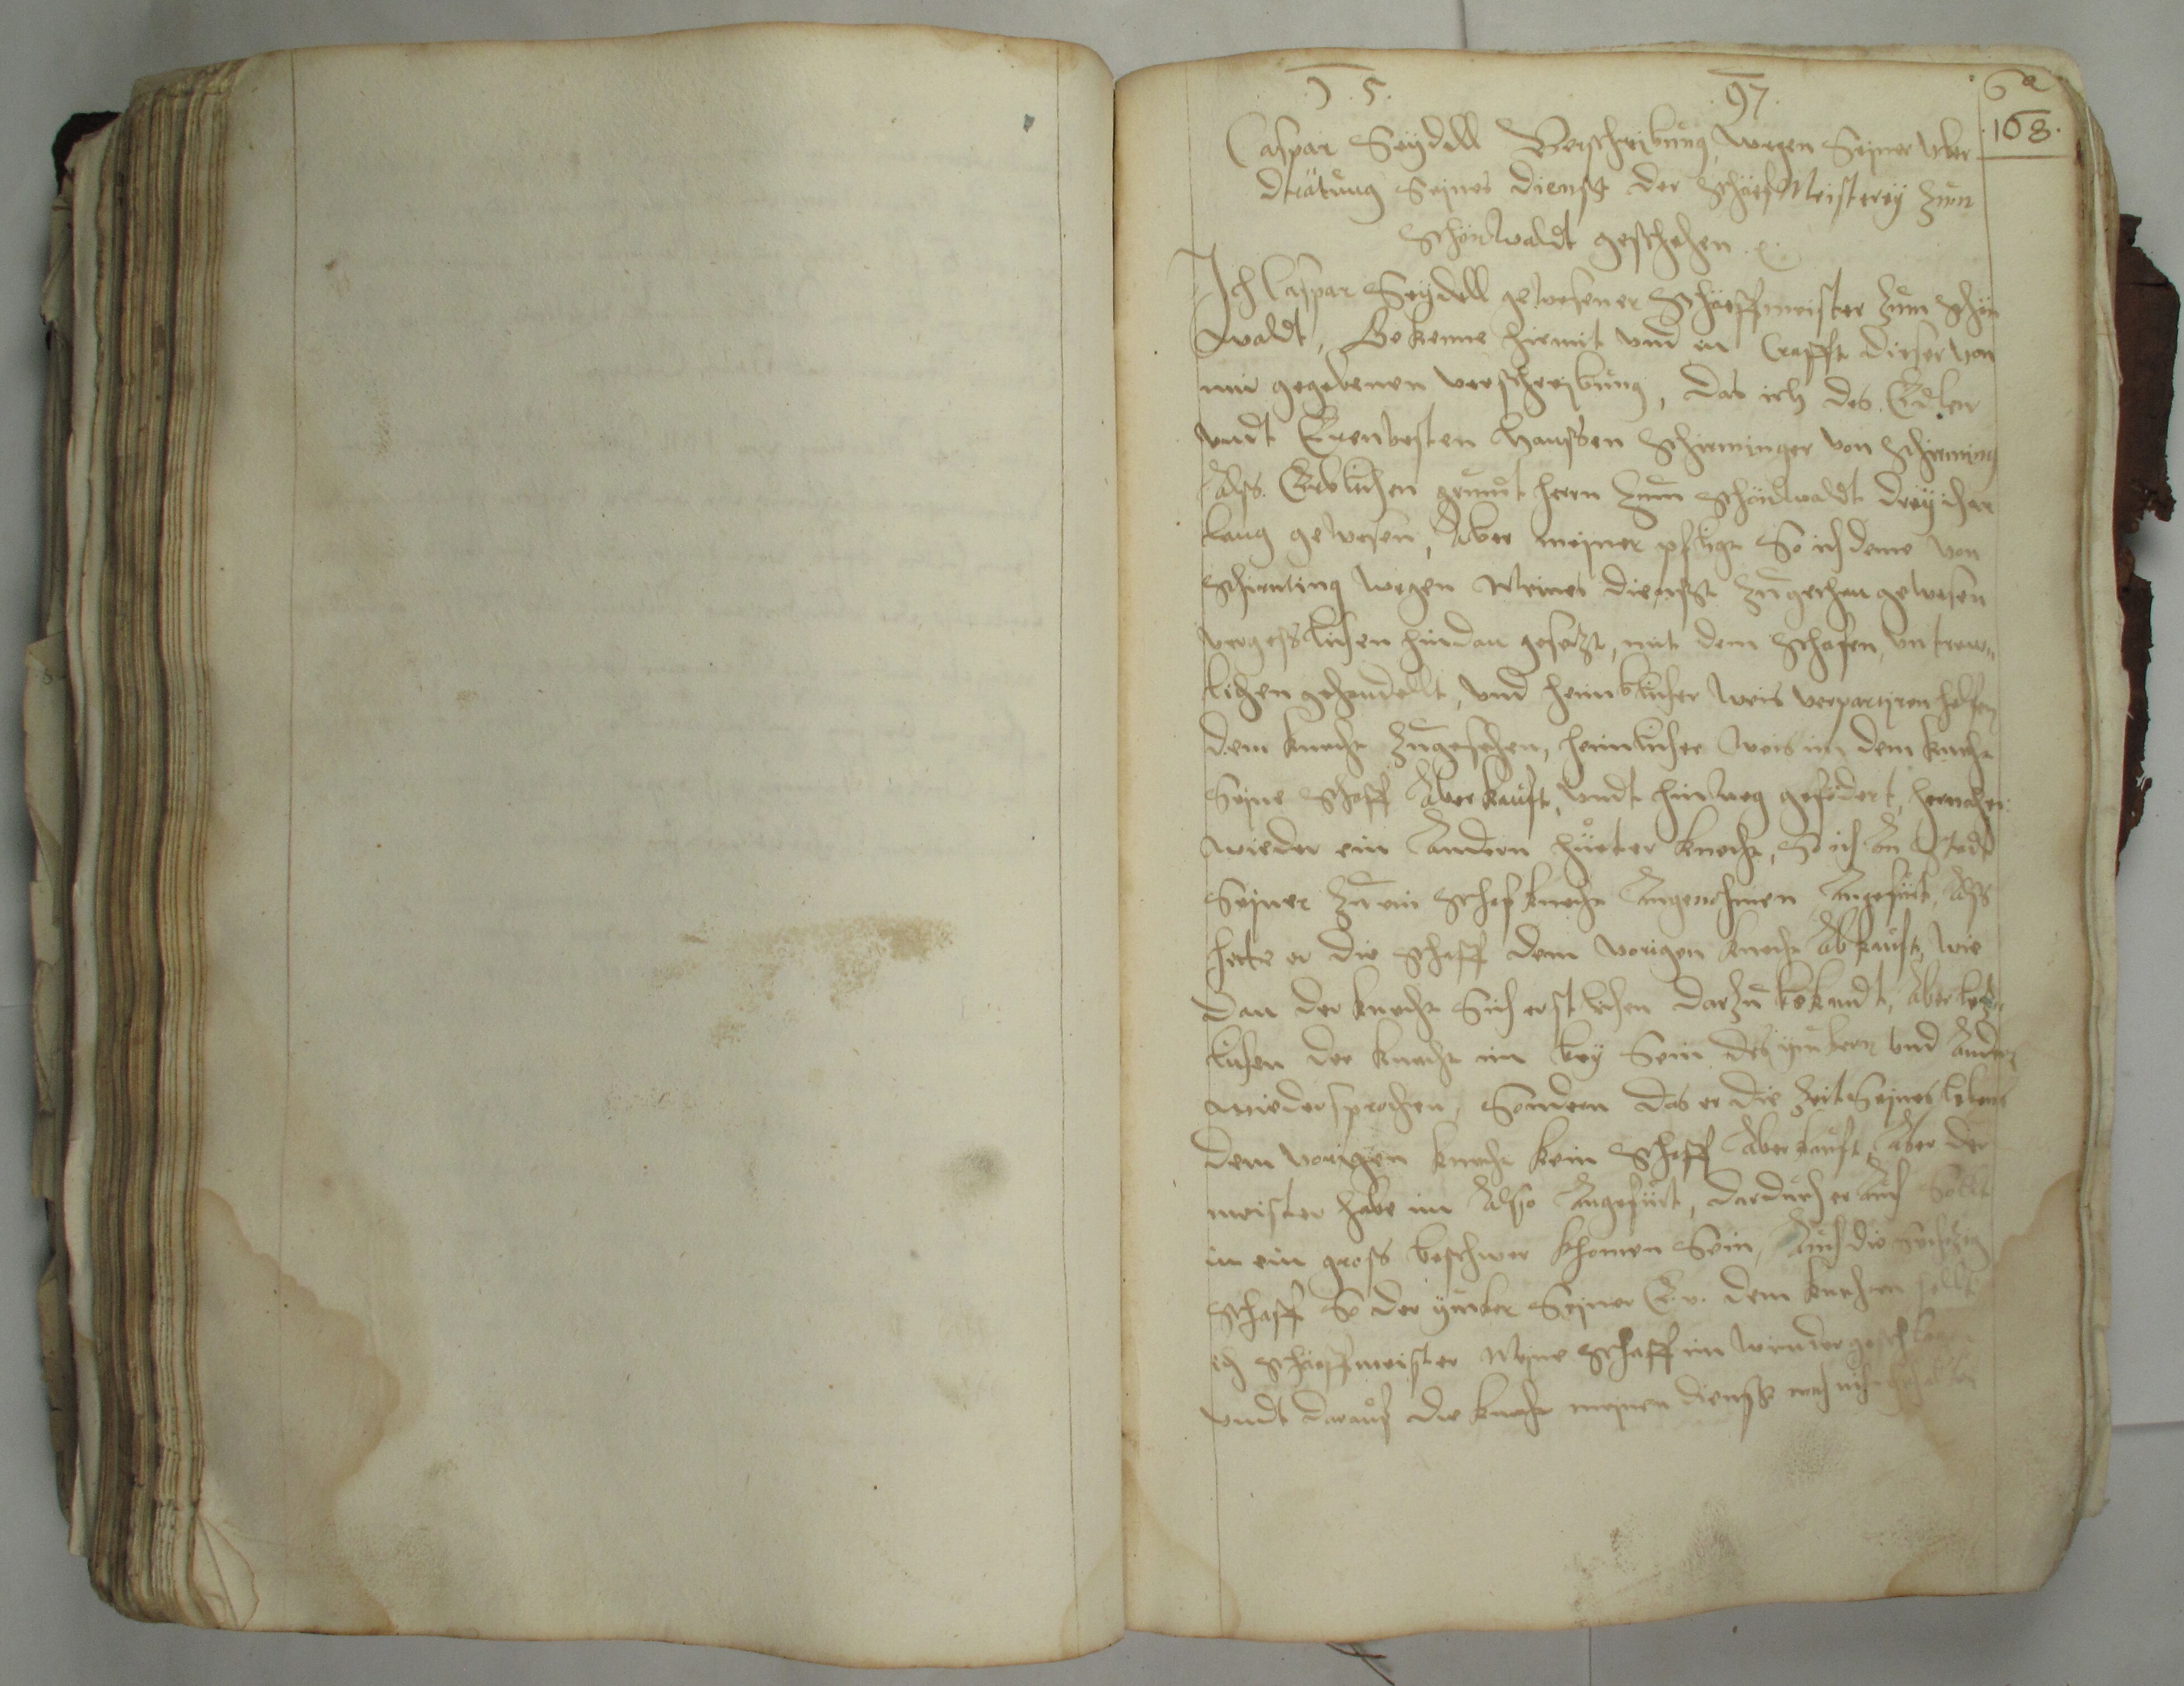 .15. .97. 62
.168.
Caspar Seÿdell Verschreibung, wegen Seiner Vber
drätung Seines diensts der SchäefMeisterÿ Zum
Schönwaldt geschehen
Ich Caspar Seÿdell gewesener Schäeffmeister Zum Schön
waldt, Bekenne hirmit vnd in Crafft dieser von
mir gegebenen verschreibung, das ich des Edlen
vndt Erenvesten Hanssen Schirntinger von Schirnting
Alss. Erblichen grundt herrn Zum Schönwaldt dreÿ ihar
lang gewesen, Aber meiner pflicht So ich deme von
Schirnting wegen Meines diensts Zugethan gewesen
vergesslichen hindan gesetzt, mit dem Schafen, vntrew„
lichen gehandellt, vnd heimblicher weis verpartiren helfen
dem knecht Zugesehen, heimlicher weis im dem knecht
Seine Schoff Aberkauft, vndt hinweg gefodert, hernacher
wieder ein Andern hueter knecht, So ich An Stadt
Seiner Zu ein Schof knecht Angenohmen Angefürt, Alss
hette er die Schaff dem vorigen knecht Abkauft, wie
dan der knecht Sich erstlichen darzu bekandt, Aber letz„
lichen der knecht im beÿ Sein des junkern vnd Andern
wiedersprochen, Sondern das er die Zeit Seines lebens
dem vorigen knecht kein Schoff Aberkauft, Aber der
meister habe in Also Angefürt, dardurch er Auch Sollt
in ein gross beschwer khomen Sein, Auch die
Schaff So der junker Seiner E.v. dem knechten sollt
ich Schäeffmeister Meine Schaff im winder
vndt darauf die knecht meinen dienst